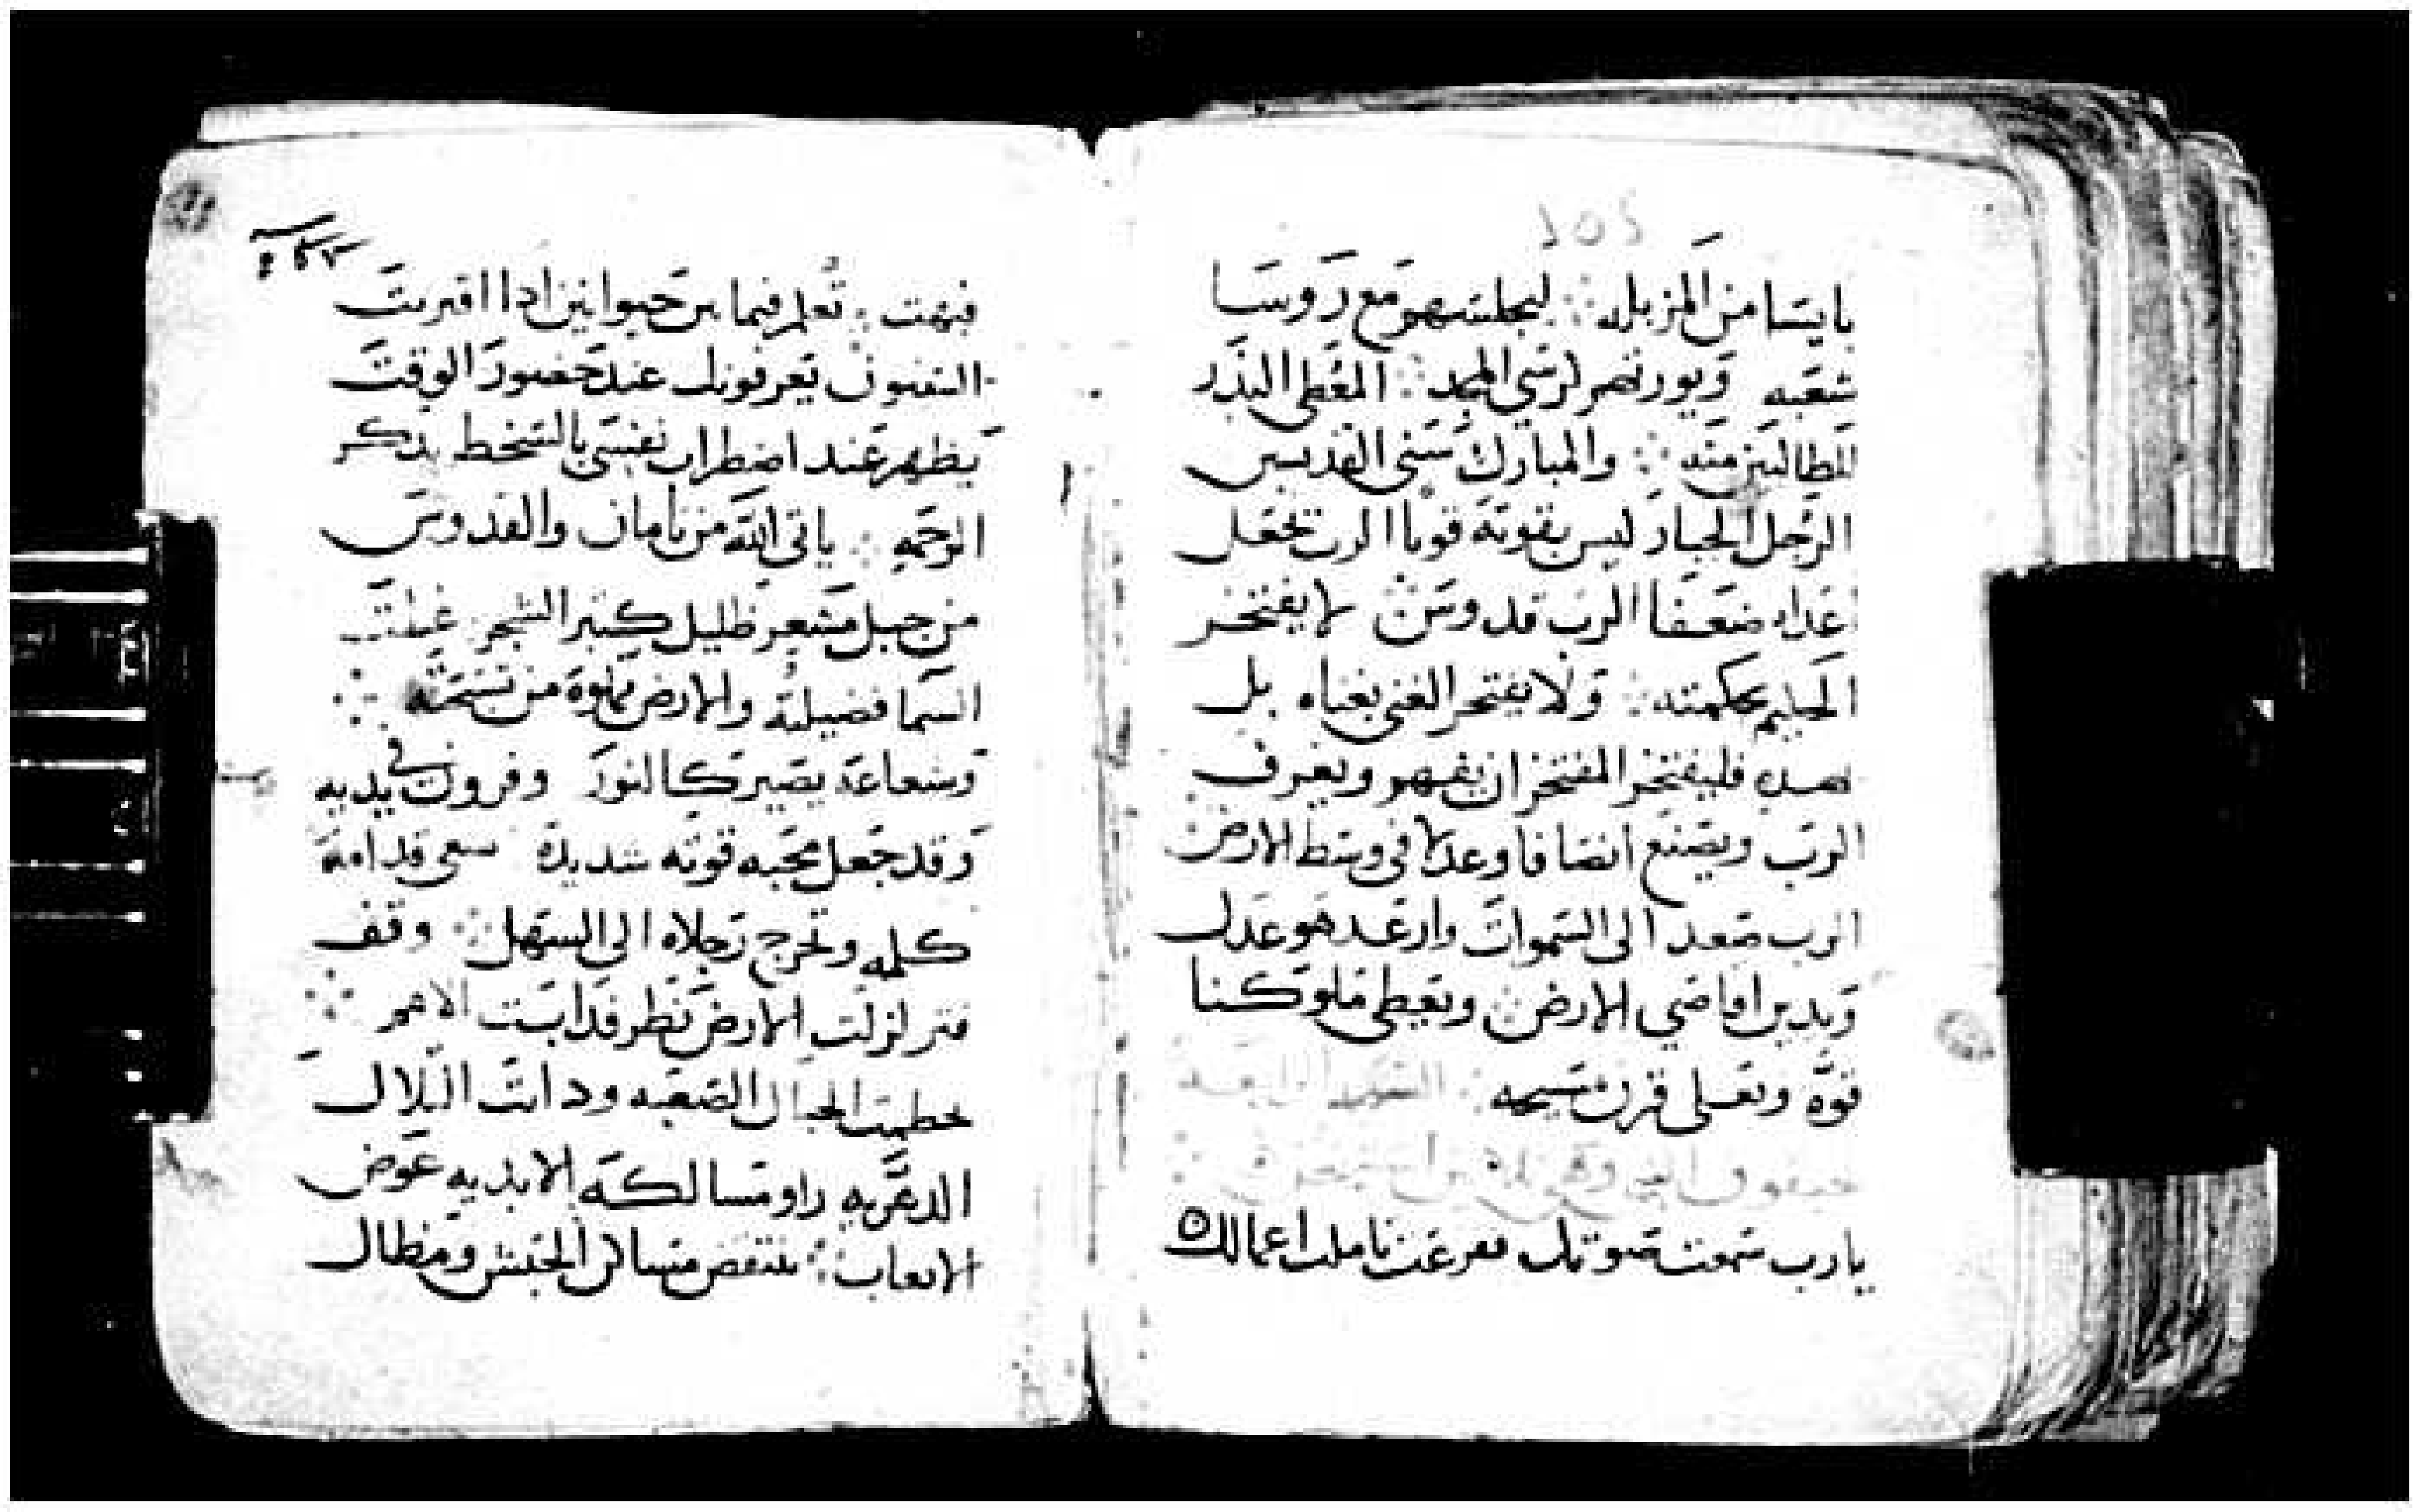 بايسا من المزبله ∴ ليجلسهم مع روسا
شعبه ويورثهم كرسي المجد ∴ المعطي النذر
للطالبين منه ∴ والمبارك سني القديسين
الرجل الجبار ليس بقوته قويا الرب تجعل
اعداه ضعفا الرب قدوس ∴ لا يفتخر
الحكيم بحكمته ∴ ولا يفتخر الغني بغناه بل
بهده فليفتخر المفتخر ان يفهم ويعرف
الرب ويصنع انصافا وعدلا في وسط الارض ∴
الرب صعد الى السموات وارعد هو عدل
ويدين اقاصي الارض ∴ ويعطي ملوكنا
قوه ويعلي قرن مسيحه ∴
حبقوق النبي
يارب سمعت صوتك ففزعت تاملت اعمالك
فبهت ∴ تعلم فيما بين حيوانين ادا اقتربت
السنون يعرفونك عند حضور الوقت
يظهر عند اضطراب نفسي بالسخط بذكر
الرحمه ∴ ياتي الله من تامان والقدوس
من جبل مشعر ظليل كثير الشجر غطت
السما فضيلته والارض مملوه من تسبحته ∴
وشعاعه يصير كالنور وقرون في يديه
وقد جعل محبه قوته شديده سعى قدامه
كلمه وتخرج رجلاه الى السهل ∴ وقف
فتزلزلت الارض نظر فدابت الامم ∴
حطمت الجبال الصعبه ودابت التلال
الدهريه راو مسالكه الابديه عوض
الاتعاب ∴ تنتقض مساكن الحبش ومظال